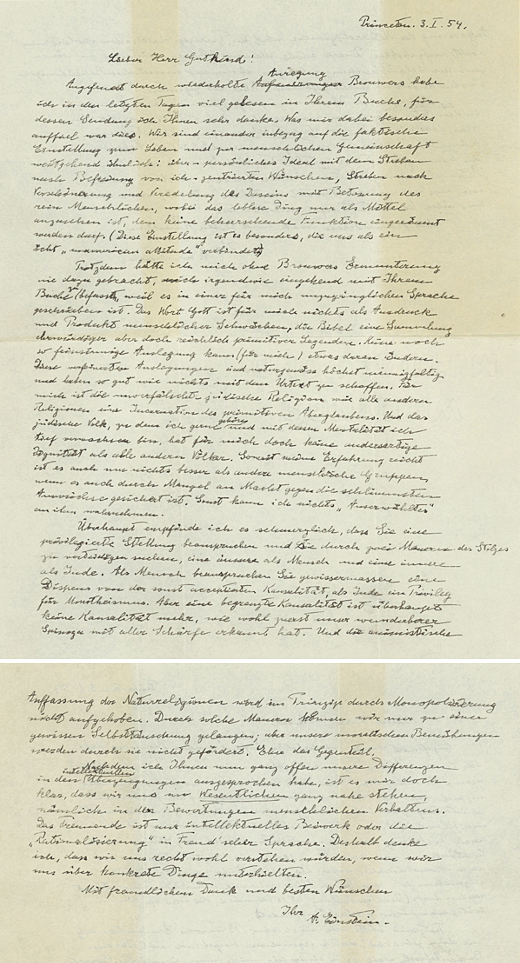 Princeton. 3. I. 54.
Lieber Herr Gutkind!
Anregung
Angefeuert durch wiederholte Brouwers habe
ich in den letzten Tagen viel gelesen in Ihrem Buche, für
dessen Sendung ich Ihnen sehr danke. Was mir dabei besonders
auffiel war dies. Wir sind einander inbezug auf die faktische
Einstellung zum Leben und zur menschlichen Gemeinschaft
weitgehend ähnlich: über-persönliches Ideal mit dem Streben
nach Befreiung von ich-zentrierten Wünschen, Streben nach
Verschönerung und Veredelung des Daseins mit Betonung des
rein Menschlichen, wobei das leblose Ding nur als Mittel
anzusehen ist, dem keine beherrschende Funktion eingeräumt
werden darf. (Diese Einstellung ist es besonders, die uns als ein
echt „unamerican attitude" verbindet)
Trotzdem hätte ich mich ohne Brouwers Ermunterung
nie dazu gebracht, mich irgendwie eingehend mit Ihrem
Buche zu befassen, weil es in einer für mich unzugänglichen Sprache
geschrieben ist. Das Wort Gott ist für mich nichts als Ausdruck
und Produkt menschlicher Schwächen, die Bibel eine Sammlung
ehrwürdiger aber doch reichlich primitiver Legenden. Keine noch
so feinsinnige Auslegung kann (für mich) etwas daran ändern.
Diese verfeinerten Auslegungen sind naturgemäss höchst mannigfaltig
und haben so gut wie nichts mit dem Urtext zu schaffen. Für
mich ist die unverfälschte jüdische Religion wie alle anderen
Religionen eine Incarnation des primitiven Aberglaubens. Und das
jüdische Volk, zu dem ich gerne gehöre und mit dessen Mentalität ich
tief verwachsen bin, hat für mich doch keine andersartige
Dignität als alle anderen Völker. Soweit meine Erfahrung reicht
ist es auch um nichts besser als andere menschliche Gruppen,
wenn es auch durch Mangel an Macht gegen die schlimmsten
Auswüchse gesichert ist. Sonst kann ich nichts „Auserwähltes"
an ihm wahrnehmen.
Überhaupt empfinde ich es schmerzlich, dass Sie eine
privilegierte Stellung beanspruchen und sie durch zwei Mauern des Stolzes
zu verteidigen suchen, eine äussere als Mensch und eine innere
als Jude. Als Mensch beanspruchen Sie gewissermassen einen
Dispens von der sonst acceptierten Kausalität, als Jude ein Privileg
für Monotheismus. Aber eine begrenzte Kausalität ist überhaupt
keine Kausalität mehr, wie wohl zuerst unser wunderbarer
Spinoza mit aller Schärfe erkannt hat. Und die animistische
Auffassung der Naturreligionen wird im Prinzip durch Monopolisierung
nicht aufgehoben. Durch solche Mauern können wir nur zu einer
gewissen Selbsttäuschung gelangen; aber unsere moralischen Bemühungen
werden durch sie nicht gefördert. Eher das Gegenteil.
Nachdem ich Ihnen nun ganz offen unsere Differenzen
in den intellektuellen Überzeugungen ausgesprochen habe, ist es mir doch
klar, dass wir uns im Wesentlichen ganz nahe stehen,
nämlich in den Bewertungen menschlichen Verhaltens.
Das Trennende ist nur intellektuelles Beiwerk oder die
„Rationalisierung" in Freud'scher Sprache. Deshalb denke
ich, dass wir uns recht wohl verstehen würden, wenn wir
uns über konkrete Dinge unterhielten.
Mit freundlichem Dank und besten Wünschen
Ihr
A. Einstein.